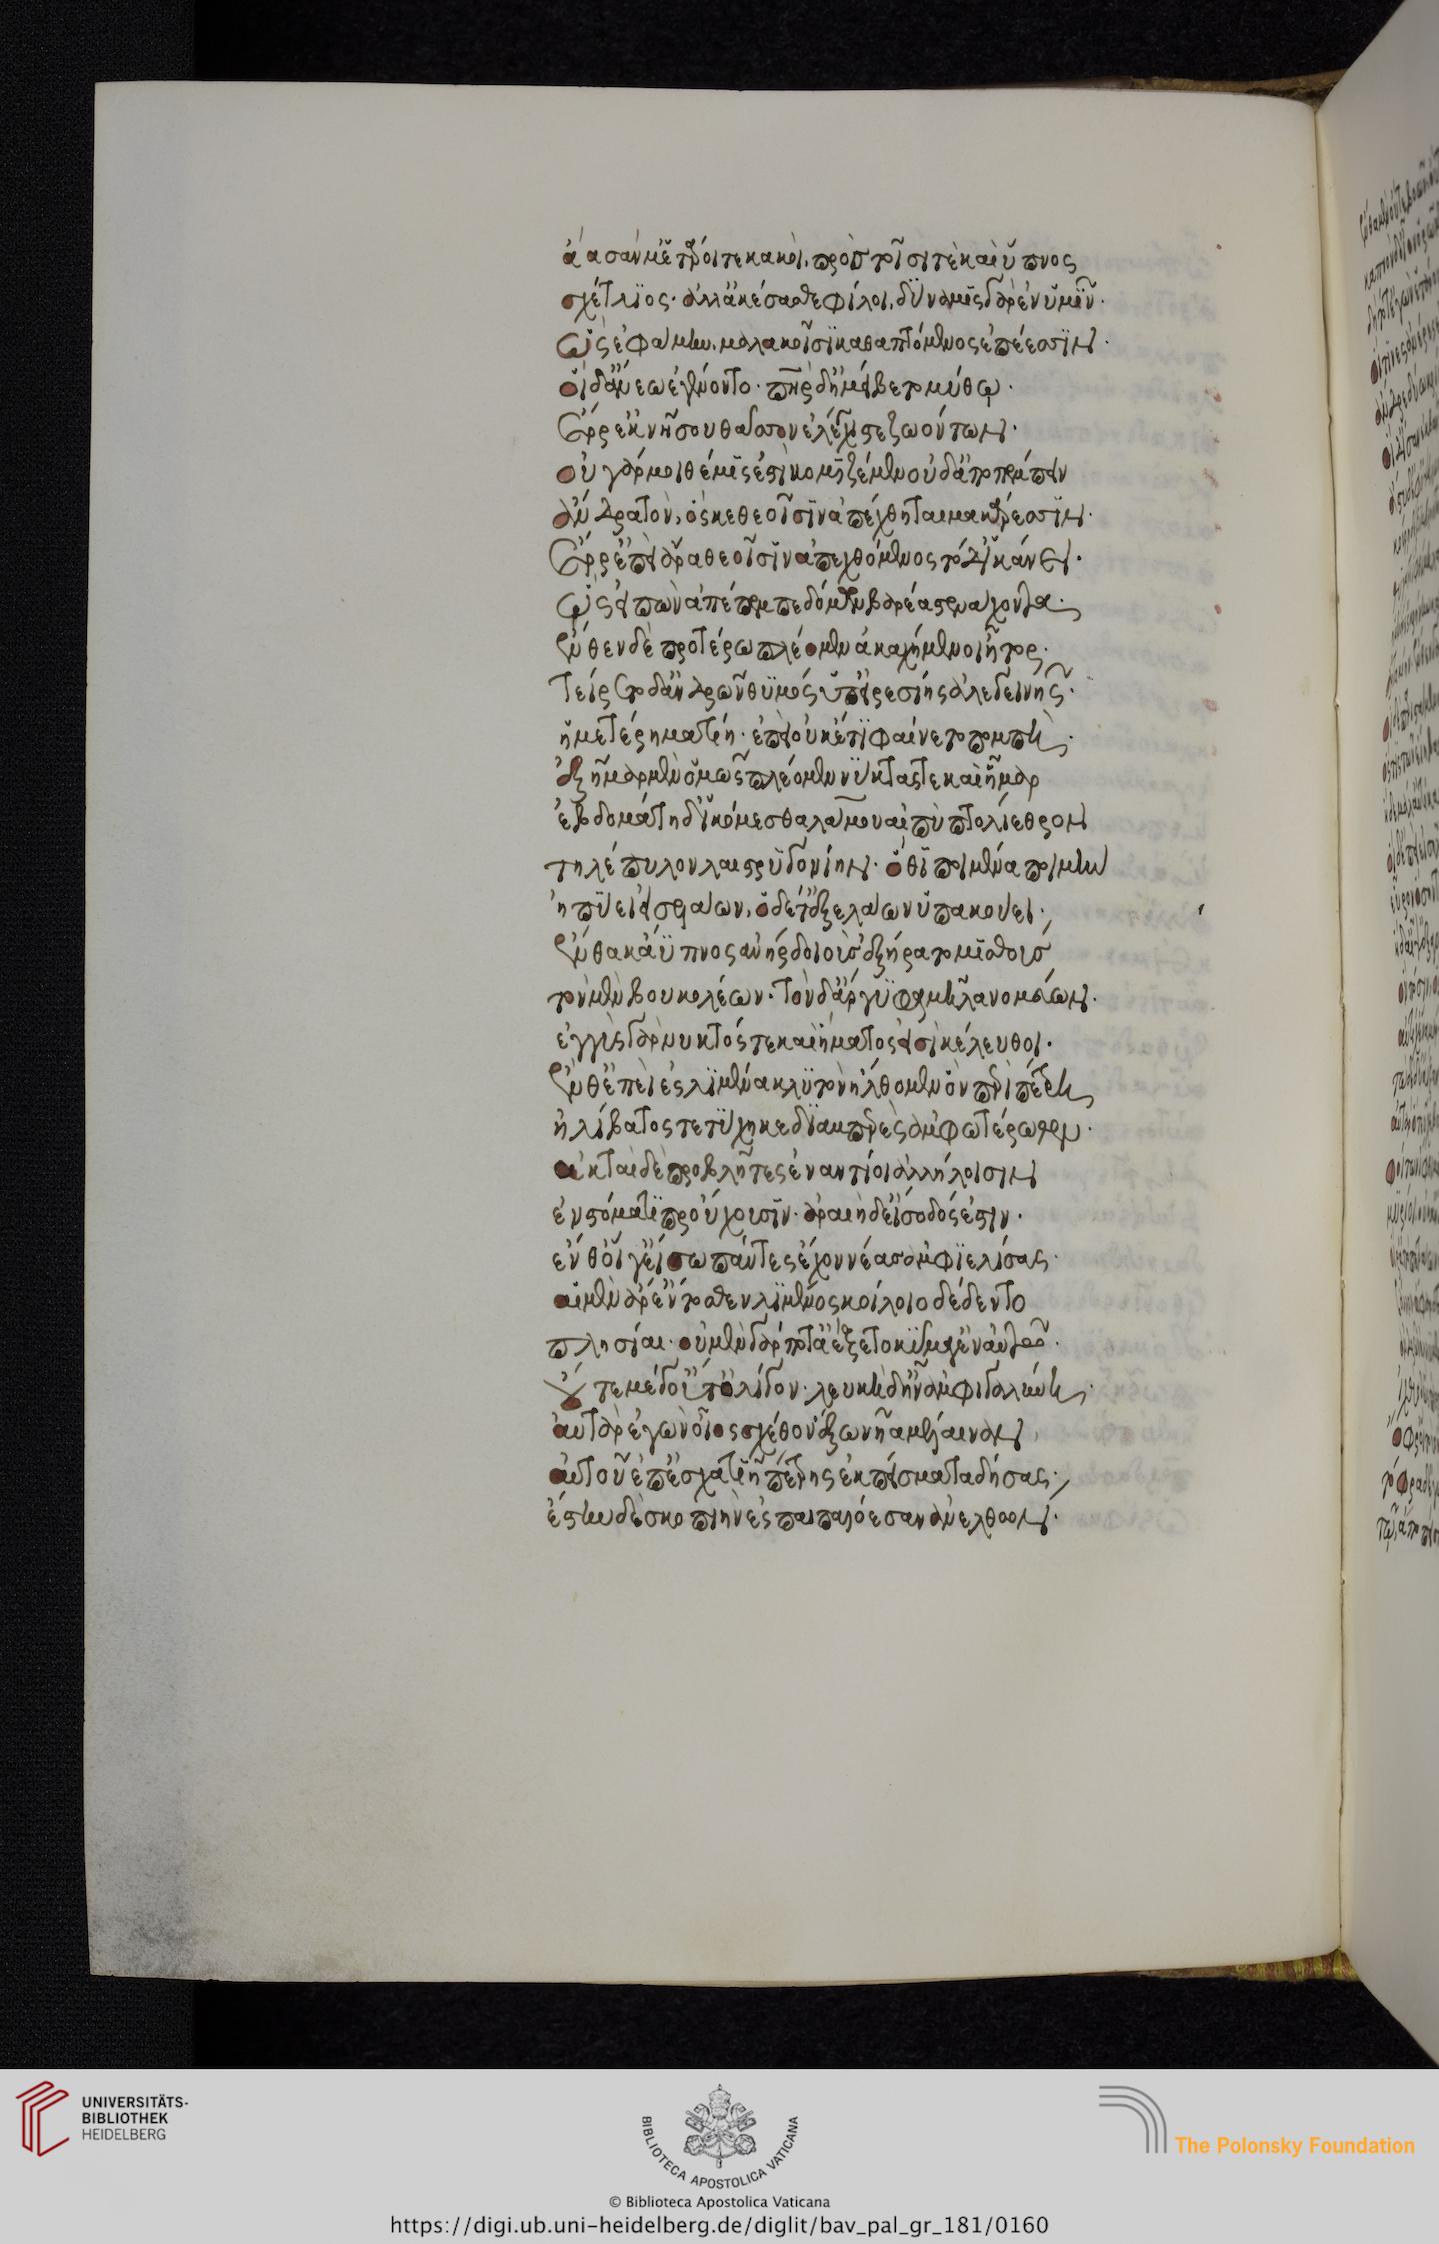 ἄασάν μ' ἕταροί τε κακοὶ, πρὸς τοῖσί τε καὶ ὕπνος
σχέτλιος· ἀλλ' ἀκέσασθε φίλοι, δύναμις γὰρ ἐν ὑμῖν.
ὣς ἐφάμην, μαλακοῖσι καθαπτόμενος ἐπέεσσιν.
οἱ δ' ἄνεω ἐγένοντο· πατὴρ δ' ἠμείβετο μύθῳ.
ἔρρ' ἐκ νήσου θᾶσσον ἐλέγχιστε ζωόντων.
οὐ γάρ μοι θέμις ἐστὶ κομιζέμεν οὐδ' ἀποπέμπειν
ἄνδρα τὸν, ὅς κε θεοῖσιν ἀπέχθηται μακάρεσσιν.
ἔρρ' ἐπεὶ ἄρα θεοῖσιν ἀπεχθόμενος τόδ' ἱκάνεις.
ὣς εἰπὼν ἀπέπεμπε δόμων βαρέα στενάχοντα.
ἔνθεν δὲ προτέρω πλέομεν ἀκαχήμενοι ἦτορ.
τείρετο δ' ἀνδρῶν θυμὸς ὑπ' εἰρεσίης ἀλεγεινῆς.
ἡμετέρῃ ματίῃ· ἐπεὶ οὐκέτι φαίνετο πομπή.
ἑξῆμαρ μὲν ὁμῶς πλέομεν νύκτας τε καὶ ἦμαρ
ἑβδομάτῃ δ' ἱκόμεσθα λάμου αἰπὺ πτολίεθρον
τηλέπυλον λαιστρυγονίην· ὅθι ποιμένα ποιμὴν
ἠπύει εἰσελάων, ὁ δέ τ' ἐξελάων ὑπακούει.
ἔνθα κ' ἄϋπνος ἀνὴρ δοιοὺς ἐξήρατο μισθούς
τὸν μὲν βουκολέων· τὸν δ' ἄργυφα μῆλα νομεύων.
ἐγγὺς γὰρ νυκτός τε καὶ ἤματός εἰσι κέλευθοι.
ἔνθ' ἐπεὶ ἐς λιμένα κλυτὸν ἤλθομεν ὃν περὶ πέτρη
ἠλίβατος τετύχηκε διαμπερὲς ἀμφοτέρωθεν.
ἀκταὶ δὲ προβλῆτες ἐναντίοι ἀλλήλοισιν
ἐν στόματι προύχουσιν· ἀραιὴ δ' εἴσοδός ἐστιν.
ἔνθ' οἵ γ' εἴσω πάντες ἔχον νέας ἀμφιελίσσας.
αἱ μὲν ἄρ' ἔντοσθεν λιμένος κοίλοιο δέδεντο
πλησίαι· οὐ μὲν γάρ ποτ' ἀέξετο κῦμά γ' ἐν αὐτῷ.
οὔτε μέγ' οὔτ' ὀλίγον· λευκὴ δ' ἦν ἀμφὶ γαλήνη.
αὐτὰρ ἐγὼν οἶος σχέθον ἔξω νῆα μέλαιναν,
αὐτοῦ ἐπ' ἐσχατιῇ πέτρης ἐκ πείσματα δήσας.
ἔστην δὲ σκοπιὴν ἐς παιπαλόεσσαν ἀνελθών.
UNIVERSITÄTS-
BIBLIOTHEK
HEIDELBERG
BIBLIOTECA APOSTOLICA VATICANA
The Polonsky Foundation
© Biblioteca Apostolica Vaticana
https://digi.ub.uni-heidelberg.de/diglit/bav_pal_gr_181/0160